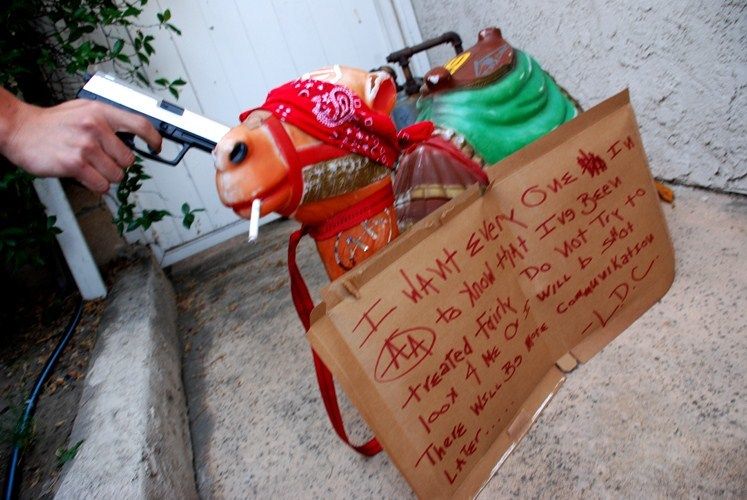 I WANT EVERY ONE IN
AA to know that I've Been
treated fairly Do Not Try to
look 4 me or I will b shot
There will be more communikation
Later.....
-L.D.C-